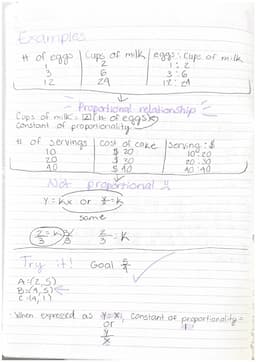 Examples
# of eggs | Cups of milk | eggs : Cups of milk
1 2 1 : 2
3 6 3 : 6
12 24 12 : 24
Proportional relationship
Cups of milk = 2 (# of eggs)
Constant of proportionality
# of servings | Cost of cake | Serving : $
10 $ 20 10 : 20
20 $ 30 20 : 30
40 $ 40 40 : 40
Not proportional
y = kx or y/x = k
same
Try it! Goal
A: (2, 5)
B: (4, 5)
C: (4, 1)
When expressed as y=x, constant of proportionality =
or
y
x